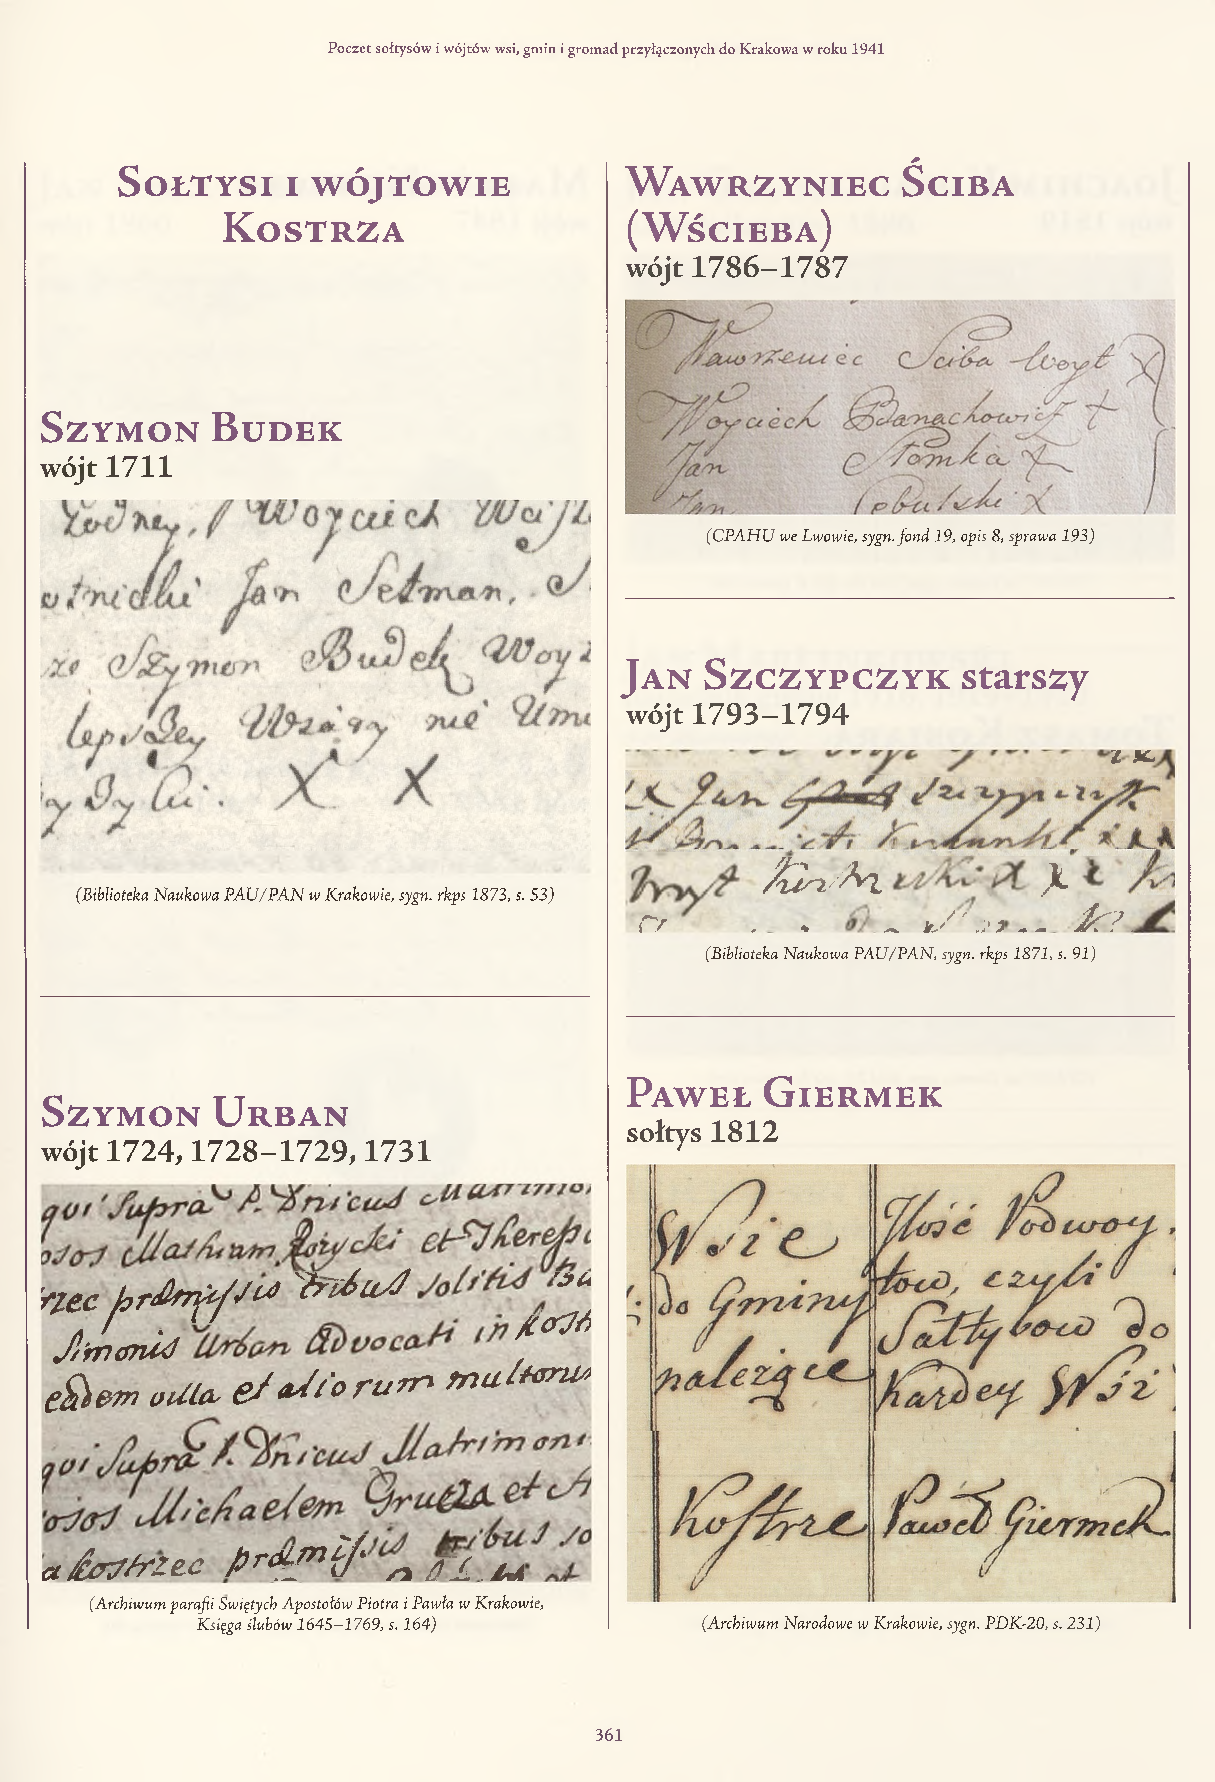 Poczet sołtysów i wójtów wsi, gmin i gromad przyłączonych do Krakowa w roku 1941
Sołtysi i wójtowie
Kostrza
Szymon Budek
wójt 1711
Woyciech
Jan Setman,
Szymon Budek Woy
lepszey nie Umi
X X
(Biblioteka Naukowa PAU/PAN w Krakowie, sygn. rkps 1873, s. 53)
Szymon Urban
wójt 1724, 1728–1729, 1731
qui Supra P. Dnicus Matrimon
Mathiam Rozycki et Theres
præmissis tribus solitis Ba
Simonis Urban Advocati in Kostr
eadem villa et aliorum multorum
qui Supra P. Dnicus Matrimoni
Michaelem Grucza et A
a Kostrzec præmissis tribus so
(Archiwum parafii Świętych Apostołów Piotra i Pawła w Krakowie,
Księga ślubów 1645–1769, s. 164)
Wawrzyniec Ściba
(Wścieba)
wójt 1786–1787
Wawrzeniec Sciba Woyt X
Woyciech Banachowicz +
Jan Słomka X
Jan Cebulski X
(CPAHU we Lwowie, sygn. fond 19, opis 8, sprawa 193)
Jan Szczypczyk starszy
wójt 1793–1794
Jan szczypczyk
Woyt
(Biblioteka Naukowa PAU/PAN, sygn. rkps 1871, s. 91)
Paweł Giermek
sołtys 1812
Wsie
do Gminy
należące
Ilość Podwoy
tow, czyli
Sałtysow do
Kazdey Wsi
Kostrze Paweł Giermek
(Archiwum Narodowe w Krakowie, sygn. PDK-20, s. 231)
361